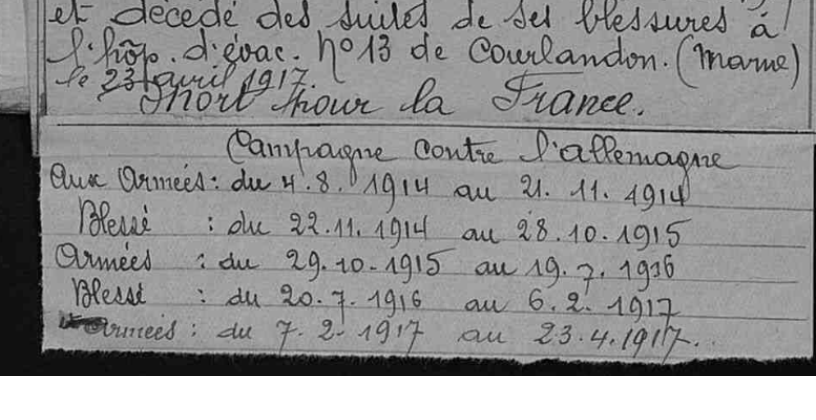 et décédé des suites de ses blessures à
l'hôp. d'évac. n° 13 de Courlandon. (Marne)
le 23 avril 1917.
Mort pour la France.
Campagne contre l'allemagne
Aux Armées : du 4.8. 1914 au 21. 11. 1914
Blessé : du 22.11.1914 au 28.10.1915
Armées : du 29.10.1915 au 19.7.1916
Blessé : du 20.7.1916 au 6.2.1917
Armées : du 7.2.1917 au 23.4.1917.